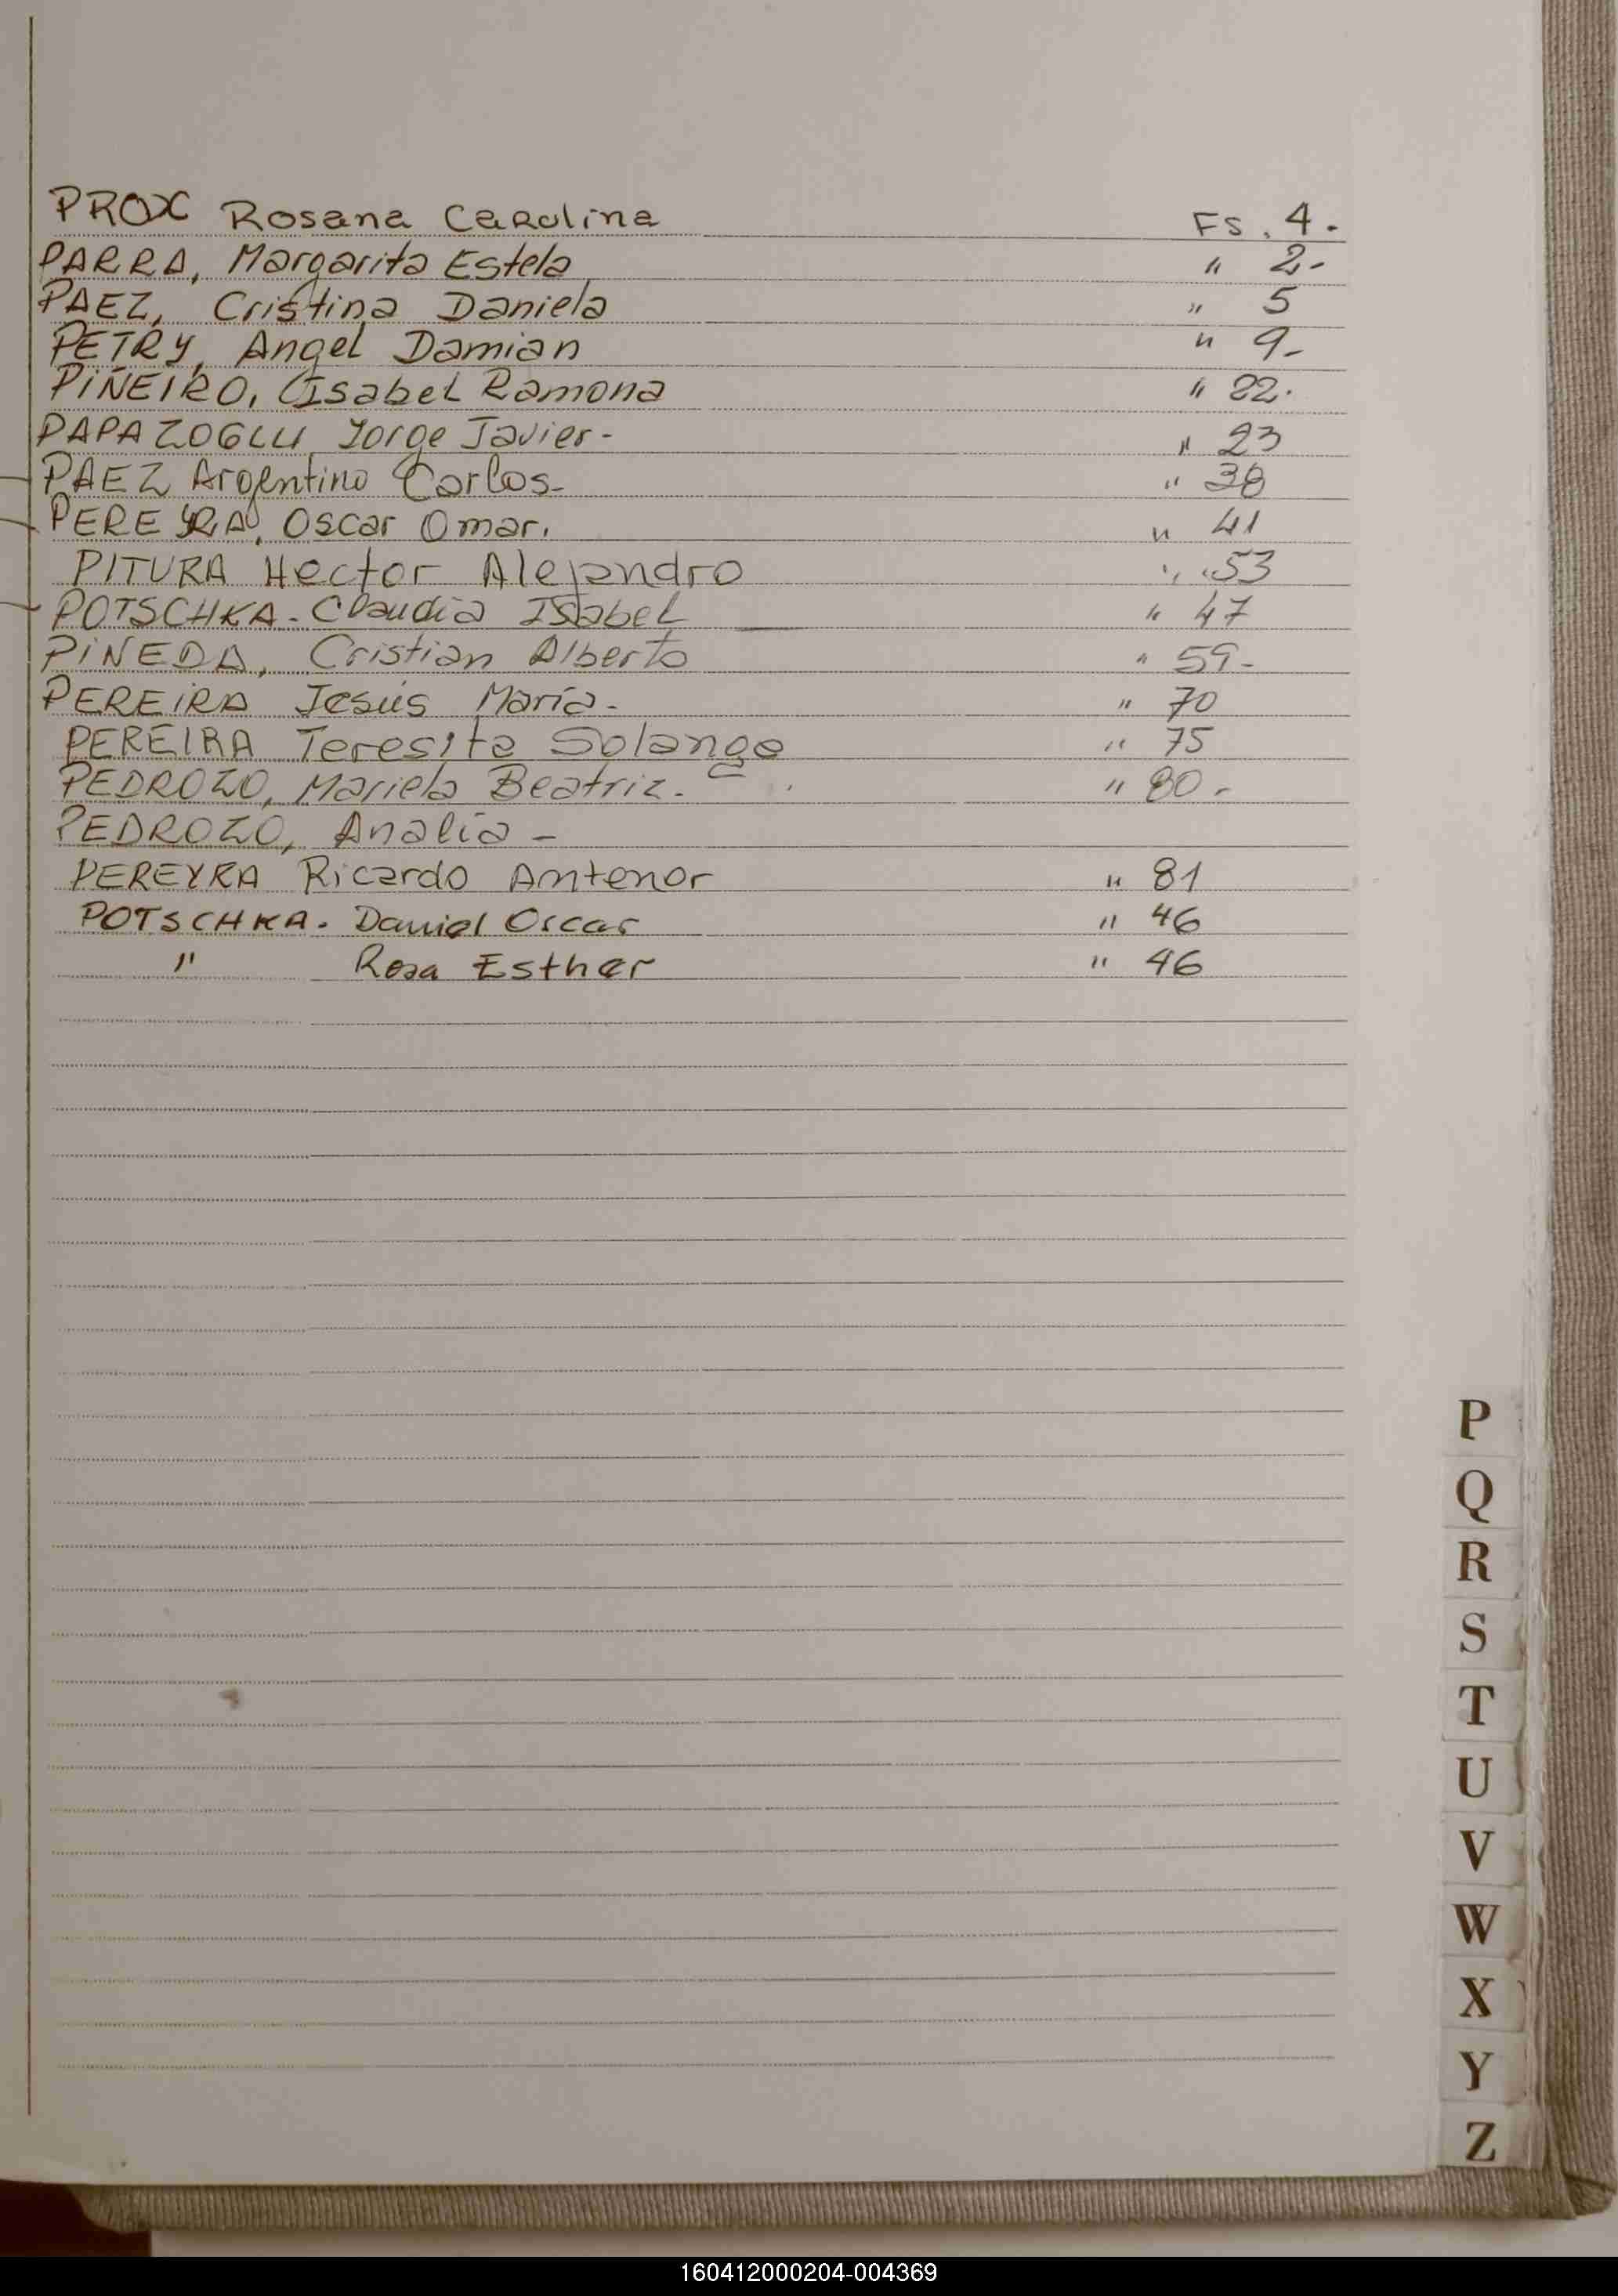 PROX Rosana Carolina Fs. 4.
PARRA, Margarita Estela " 2-
PAEZ, Cristina Daniela " 5
PETRY, Angel Damian " 9-
PIÑEIRO, Isabel Ramona " 22.
PAPAZOGLU, Jorge Javier- " 23
PAEZ Argentino Carlos- " 38
PEREYRA, Oscar Omar. " 41
PITURA Hector Alejandro " 53
POTSCHKA- Claudia Isabel " 47
PINEDA, Cristian Alberto " 59-
PEREIRA Jesús María- " 70
PEREIRA Teresita Solange " 75
PEDROZO, Mariela Beatriz- " 80-
PEDROZO, Analía-
PEREYRA Ricardo Antenor " 81
POTSCHKA. Daniel Oscar " 46
" Rosa Esther " 46
P
Q
R
S
T
U
V
W
X
Y
Z
160412000204-004369